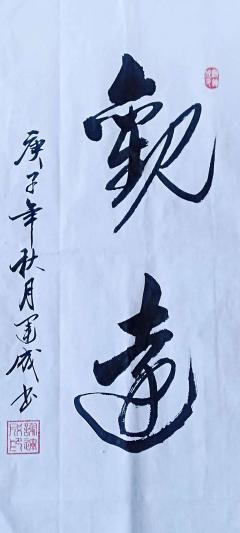 觀遠
庚子年秋月運成书